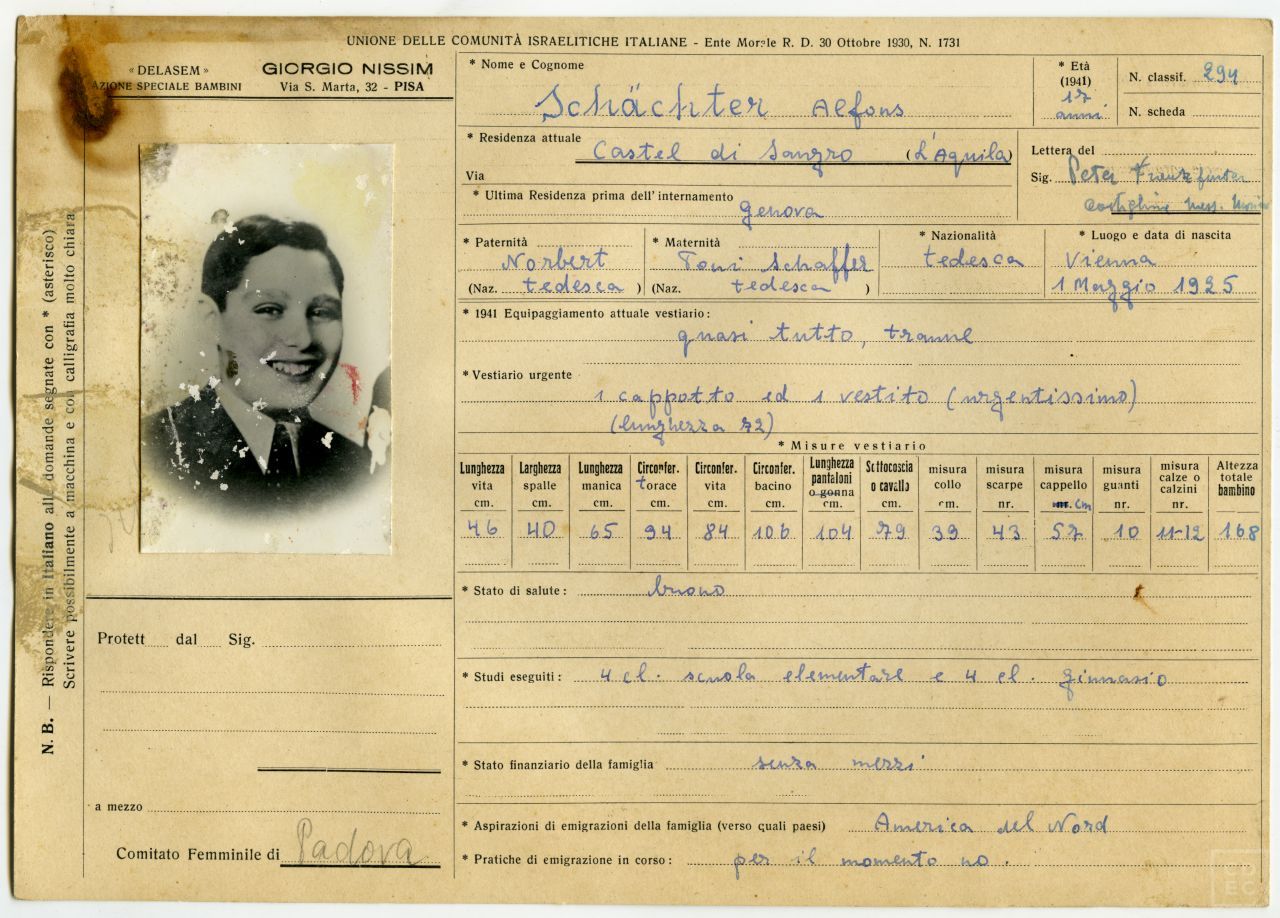 UNIONE DELLE COMUNITÀ ISRAELITICHE ITALIANE - Ente Morale R. D. 30 Ottobre 1930, N. 1731
« DELASEM »
AZIONE SPECIALE BAMBINI
GIORGIO NISSIM
Via S. Marta, 32 - PISA
N. B. — Rispondere in Italiano alle domande segnate con * (asterisco)
Scrivere possibilmente a macchina e con calligrafia molto chiara
* Nome e Cognome
Schächter Alfons
* Età (1941)
17 anni
N. classif. 294
N. scheda
* Residenza attuale
Castel di Sangro (L'Aquila)
Via
Lettera del
Sig. Peter
* Ultima Residenza prima dell'internamento
Genova
* Paternità
Norbert
(Naz. tedesca )
* Maternità
Toni Schaffer
(Naz. tedesca )
* Nazionalità
tedesca
* Luogo e data di nascita
Vienna
1 Maggio 1925
* 1941 Equipaggiamento attuale vestiario:
quasi tutto, tranne
* Vestiario urgente
1 cappotto ed 1 vestito (urgentissimo)
(lunghezza 72)
* Misure vestiario
Lunghezza vita cm. 46
Larghezza spalle cm. 40
Lunghezza manica cm. 65
Circonfer. torace cm. 94
Circonfer. vita cm. 84
Circonfer. bacino cm. 106
Lunghezza pantaloni o gonna cm. 104
Sottocoscia o cavallo cm. 79
misura collo cm. 39
misura scarpe nr. 43
misura cappello nr. cm 57
misura guanti nr. 10
misura calze o calzini nr. 11-12
Altezza totale bambino 168
* Stato di salute: buono
* Studi eseguiti: 4 cl. scuola elementare e 4 cl. ginnasio
* Stato finanziario della famiglia senza mezzi
* Aspirazioni di emigrazioni della famiglia (verso quali paesi) America del Nord
* Pratiche di emigrazione in corso: per il momento no.
Protett dal Sig.
a mezzo
Comitato Femminile di Padova
CDEC